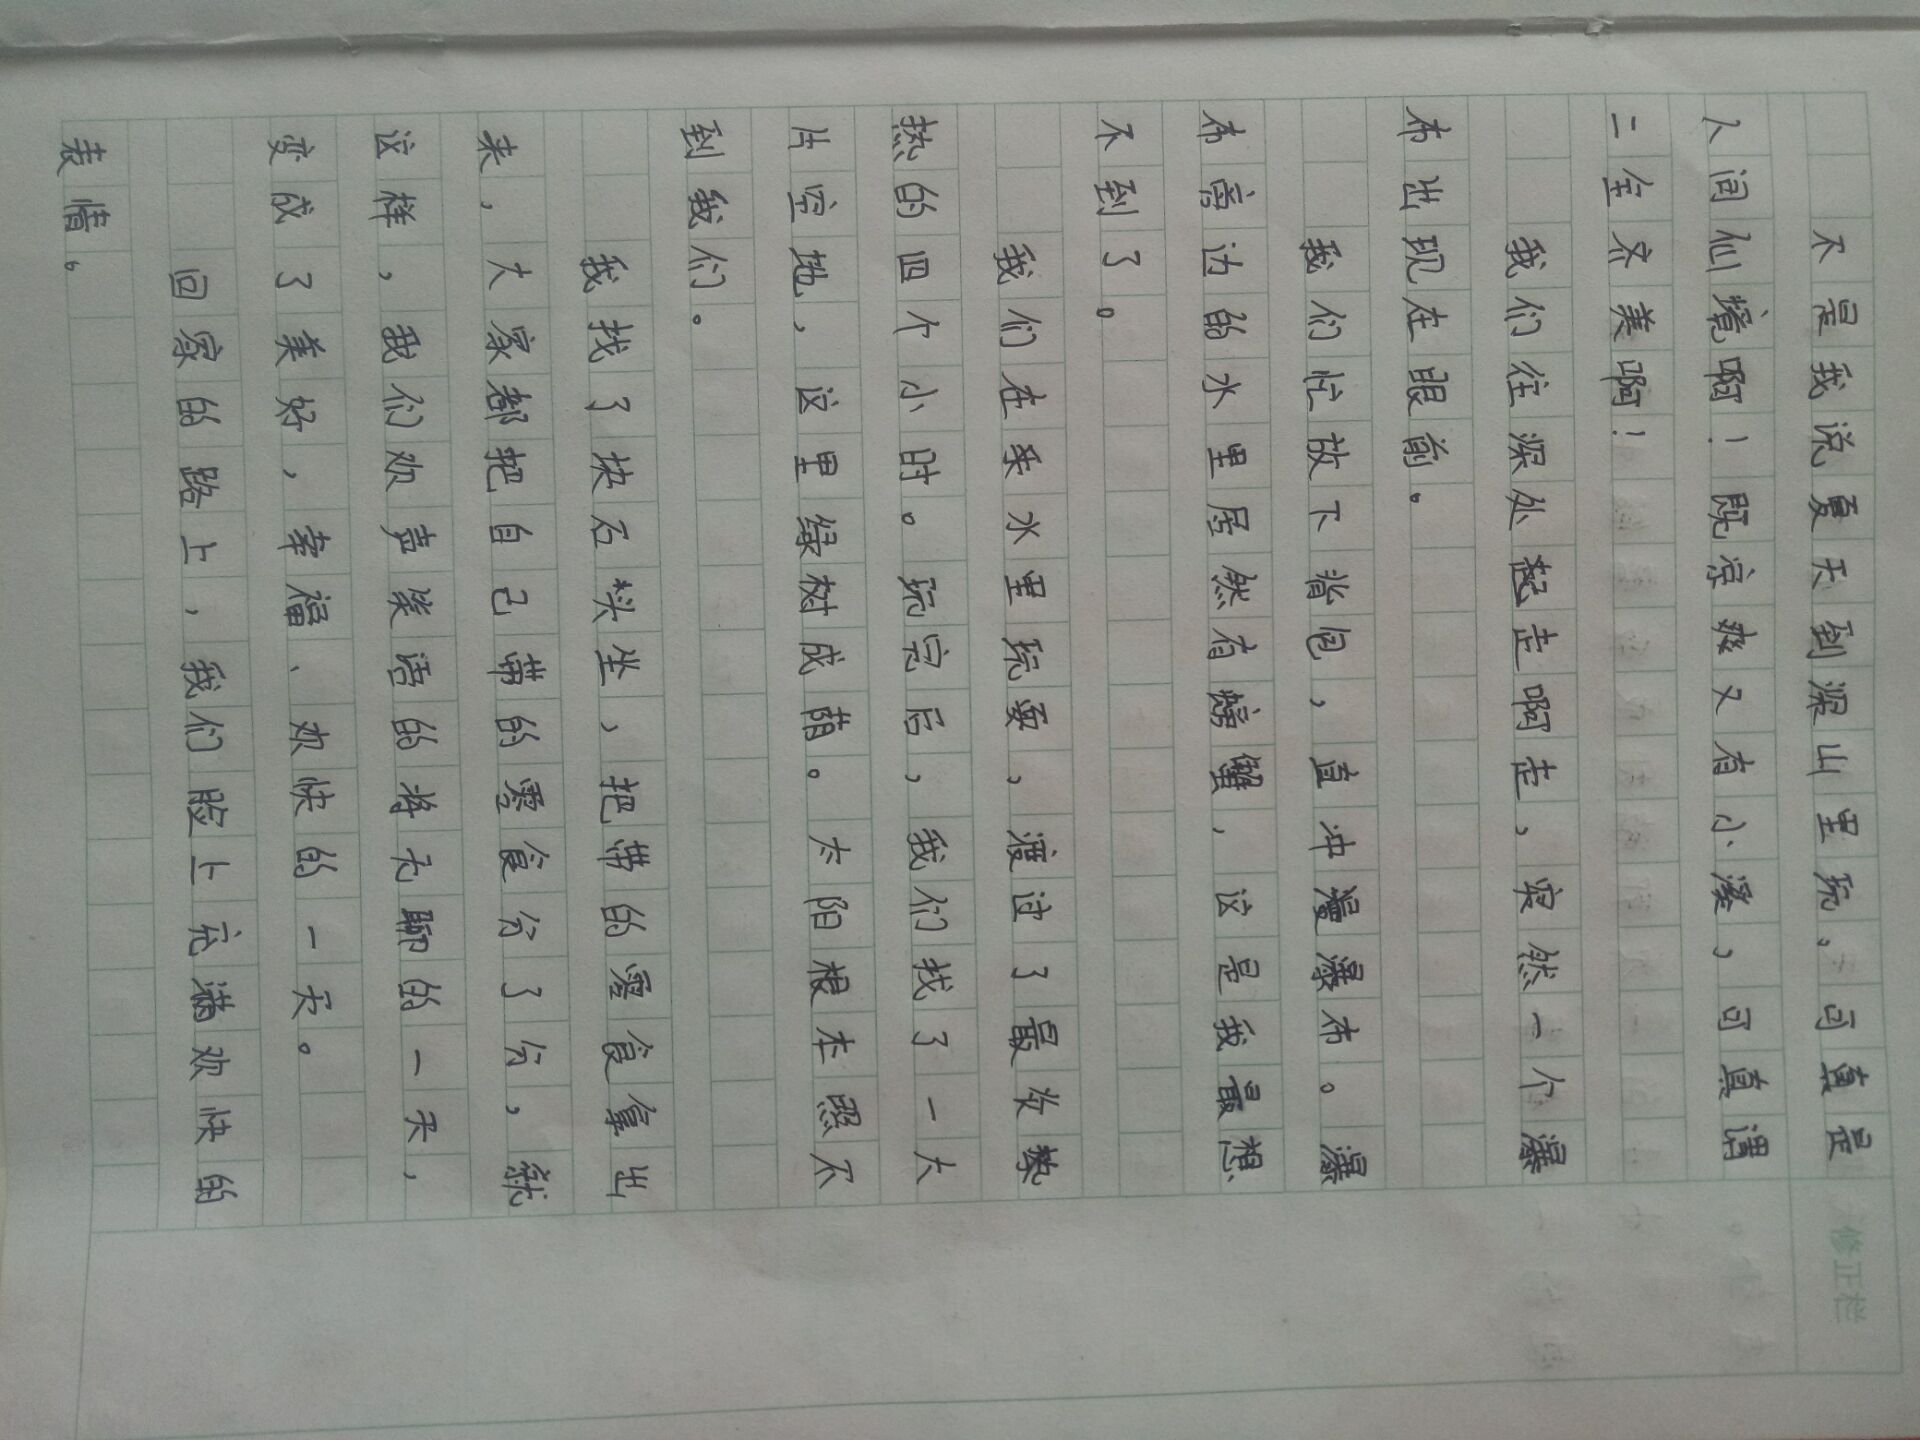 不是我说夏天到深山里玩，可真是
人间仙境啊！既凉爽又有小溪，可真谓
二全齐美啊！
我们往深处起走啊走，突然一个瀑
布出现在眼前。
我们忙放下背包，直冲瀑布。瀑
布旁边的水里居然有螃蟹，这是我最想
不到了。
我们在乘水里玩耍，渡过了最炎热
热的四个小时。玩完后，我们找了一大
片空地，这里绿树成荫。太阳根本照不
到我们。
我找了块石头坐，把带的零食拿出
来，大家都把自己带的零食分了份，就
这样，我们欢声笑语的将无聊的一天，
变成了美好，幸福、欢快的一天。
回家的路上，我们脸上充满欢快的
表情。
修正栏